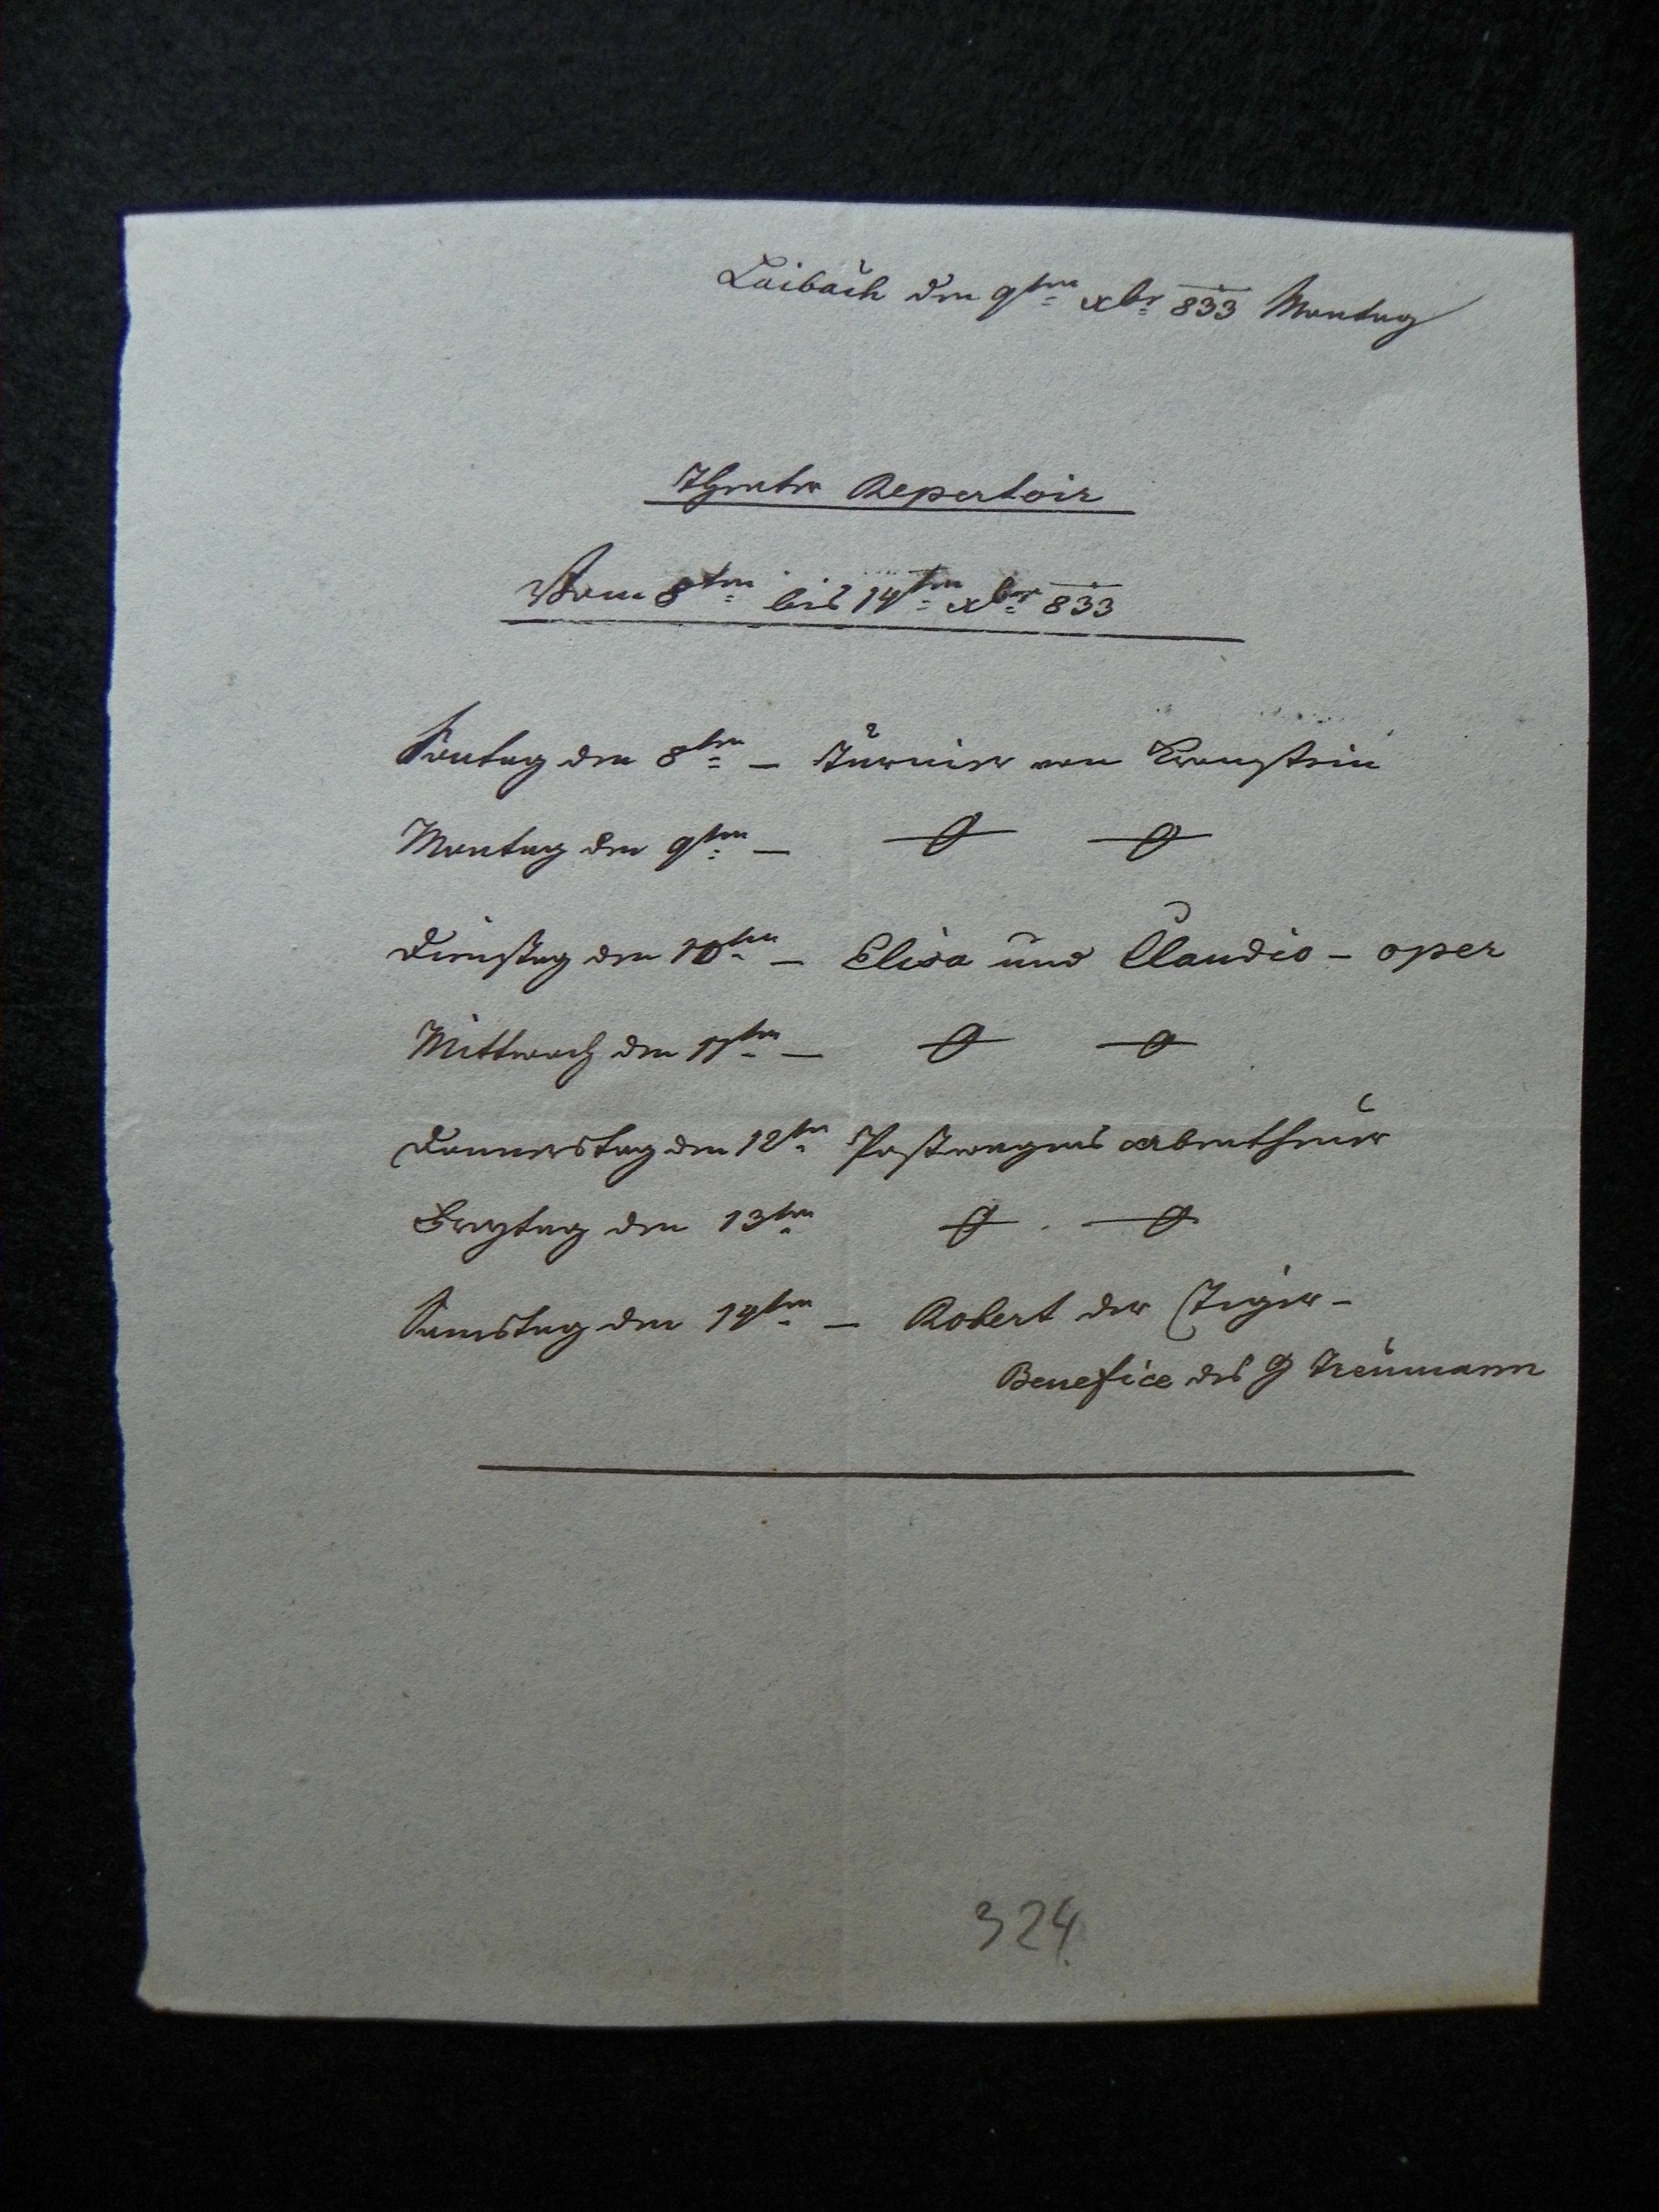 Laibach den 9ten xbr 833 Montag
Theater Repertoir
Vom 8ten bis 14ten xber 833
Sontag den 8ten – Turnier von Kronstein
Montag den 9ten –
Dienstag den 10ten – Elisa und Claudio – oper
Mittwoch den 11ten –
Donnerstag den 12ten Postwagens abentheuer
Freytag den 13ten
Samstag den 14ten – Robert der Tiger –
Benefice des H Treumann
324